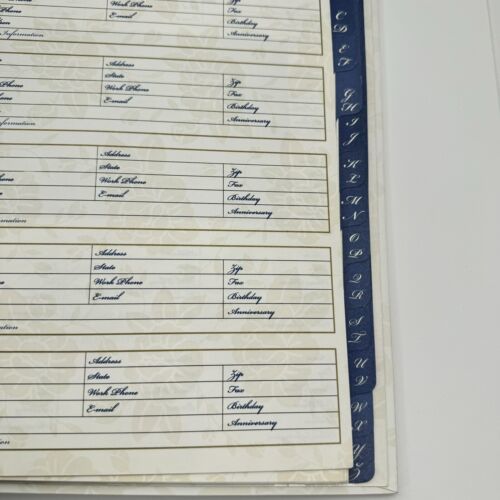 Phone
Work Phone
Fax
E-mail
Birthday
Information
Anniversary
Address
State
Zip
Phone
Work Phone
Fax
E-mail
Birthday
Information
Anniversary
Address
State
Zip
Phone
Work Phone
Fax
E-mail
Birthday
Anniversary
Address
State
Zip
Work Phone
Fax
E-mail
Birthday
Anniversary
Address
State
Zip
Work Phone
Fax
E-mail
Birthday
Anniversary
C
D
E
F
G
H
I
J
K
L
M
N
O
P
Q
R
S
T
U
V
W
X
Y
Z